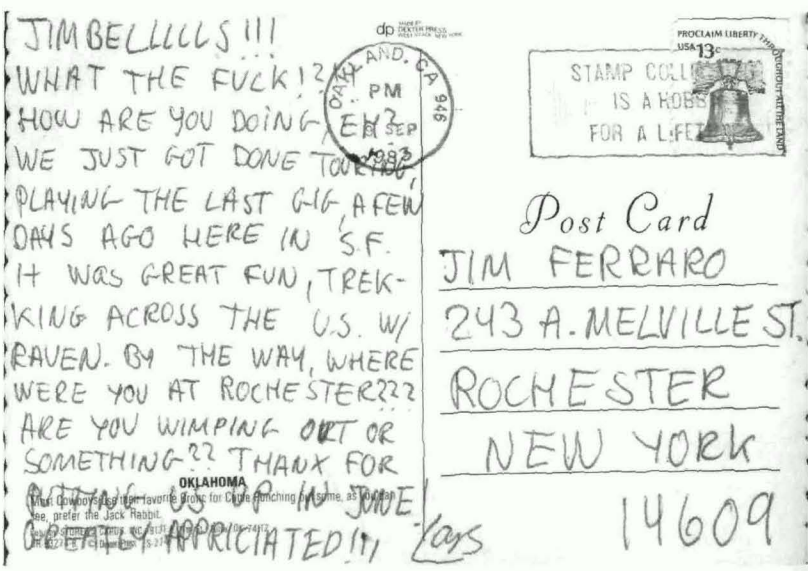 JIMBELLLLS!!!
WHAT THE FUCK!?
HOW ARE YOU DOING, EH?
WE JUST GOT DONE TOURING,
PLAYING THE LAST GIG, A FEW
DAYS AGO HERE IN S.F.
It WAS GREAT FUN, TREK-
KING ACROSS THE U.S. W/
RAVEN. BY THE WAY, WHERE
WERE YOU AT ROCHESTER???
ARE YOU WIMPING OUT OR
SOMETHING?? THANX FOR
PUTTING US UP IN JUNE!
GREATLY APPRICIATED!!!, Lars
OKLAHOMA
Most Cowboys use their favorite Bronc for Cattle Punching but some, as you can
see, prefer the Jack Rabbit.
dp
DEXTER PRESS
WEST NYACK, NEW YORK
OAKLAND, CA 946
PM
SEP
1983
STAMP COLLECTING
IS A HOBBY
FOR A LIFETIME
PROCLAIM LIBERTY THROUGHOUT ALL THE LAND
USA 13c
Post Card
JIM FERRARO
243 A. MELVILLE ST.
ROCHESTER
NEW YORK
14609